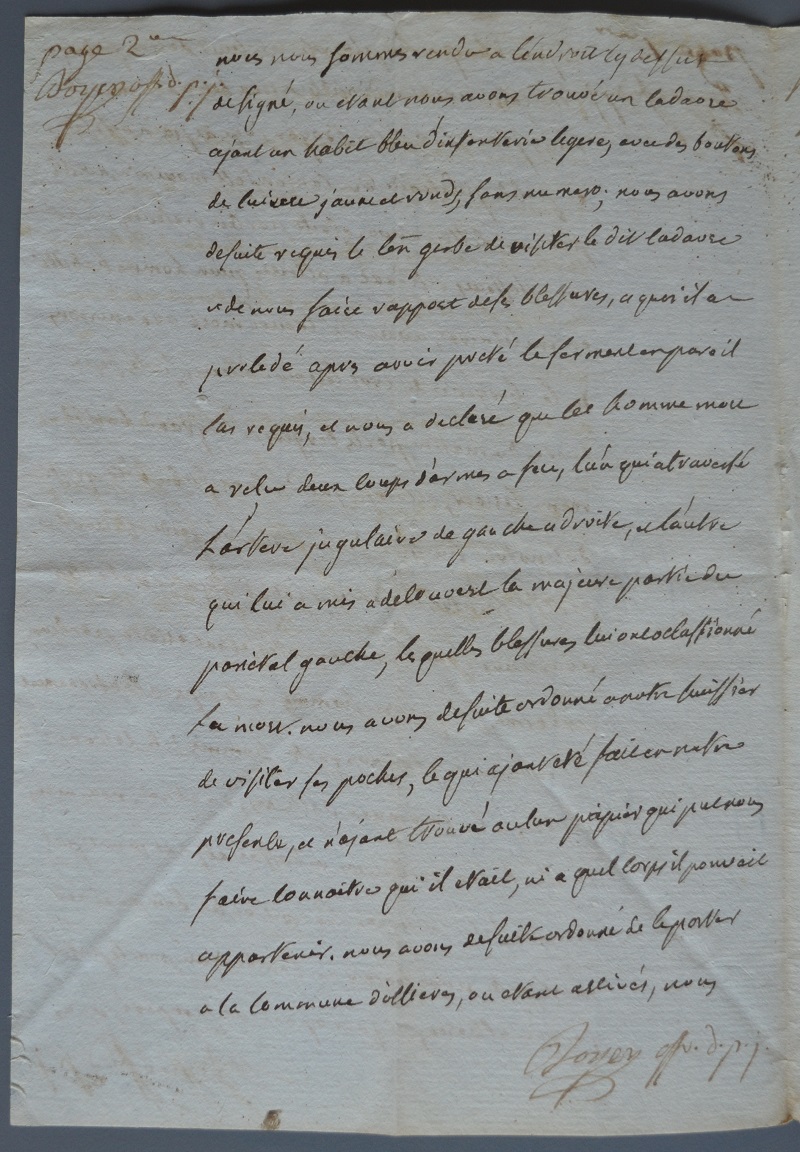 page 2me
nous nous sommes rendu a l'endroit cy dessus
designé, ou etant nous avons trouvé un cadavre
ajant un habit bleu d'infenterie legere, avec des boutons
de cuivre jaune et ronds, sans numero; nous avons
desuite requis le cen gerbe de visiter le dit cadavre
et de nous faire rapport de ses blessures, a quoi il a
procedé apres avoir preté le serment en pareil
cas requis, et nous a declaré que cet homme mort
a reçu deux coups d'armes a feu, l'un qui a traversé
l'artere jugulaire de gauche a droite, et l'autre
qui lui a mis a decouvert la majeure partie du
parietal gauche, les quelles blessures lui ont oclassionné
la mort. nous avons desuite ordonné a notre huissier
de visiter ses poches, ce qui ajant eté fait en notre
presence, et n'ajant trouvé aucun papier qui put nous
faire connoitre qui il etait, ni a quel corps il pouvait
appartenir. nous avons desuite ordonné de le porter
a la commune d'ollieres, ou etant arrivés, nous
off. d. p. j.